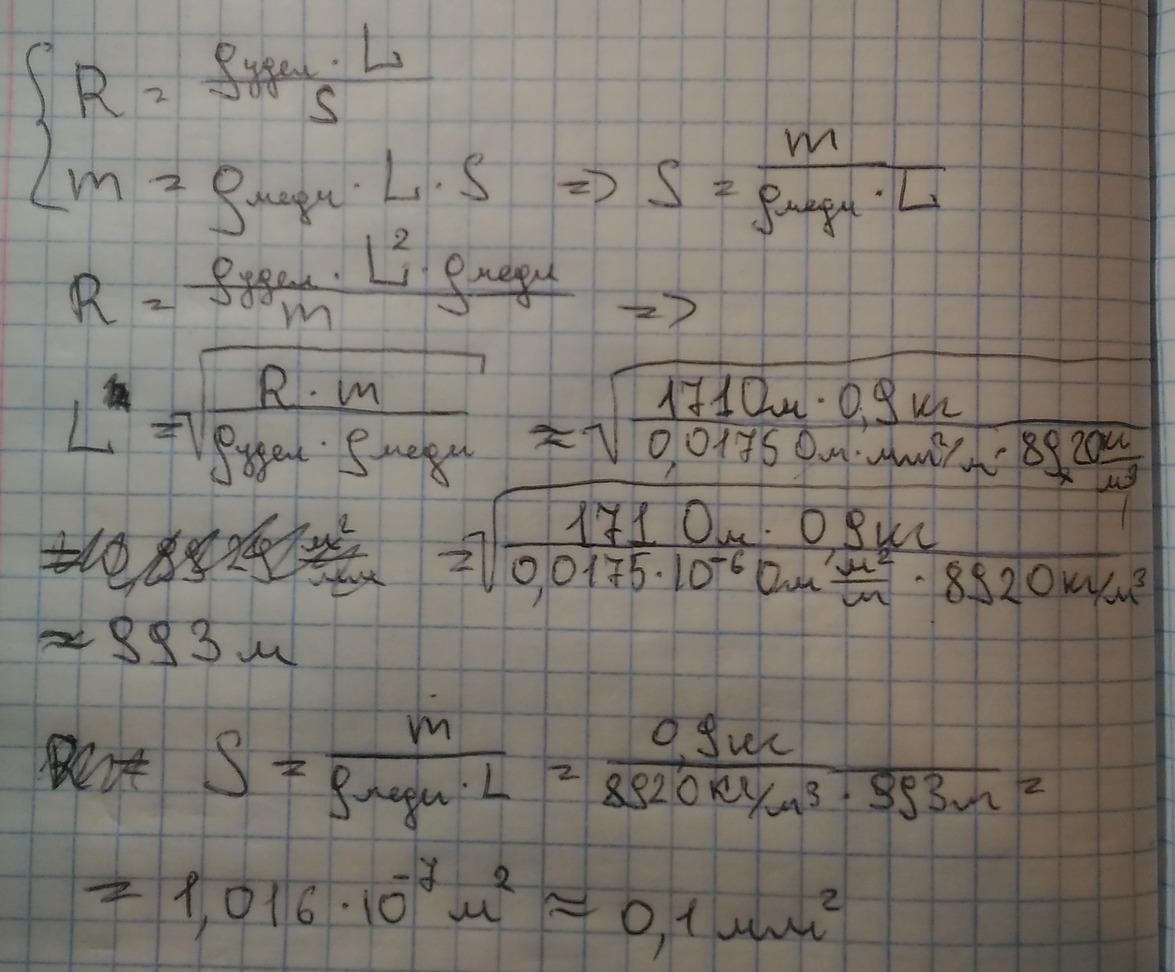 R = ρудел · L / S
m = ρмеди · L · S => S = m / ρмеди · L
R = ρудел · L² · ρмеди / m =>
L = √ R · m / ρудел · ρмеди ≈ √ 171 Ом · 0,9 кг / 0,0175 Ом · мм²/м · 8920 кг/м³
= √ 171 Ом · 0,9 кг / 0,0175 · 10⁻⁶ Ом м²/м · 8920 кг/м³
≈ 993 м
S = m / ρмеди · L = 0,9 кг / 8920 кг/м³ · 993 м =
= 1,016 · 10⁻⁷ м² ≈ 0,1 мм²